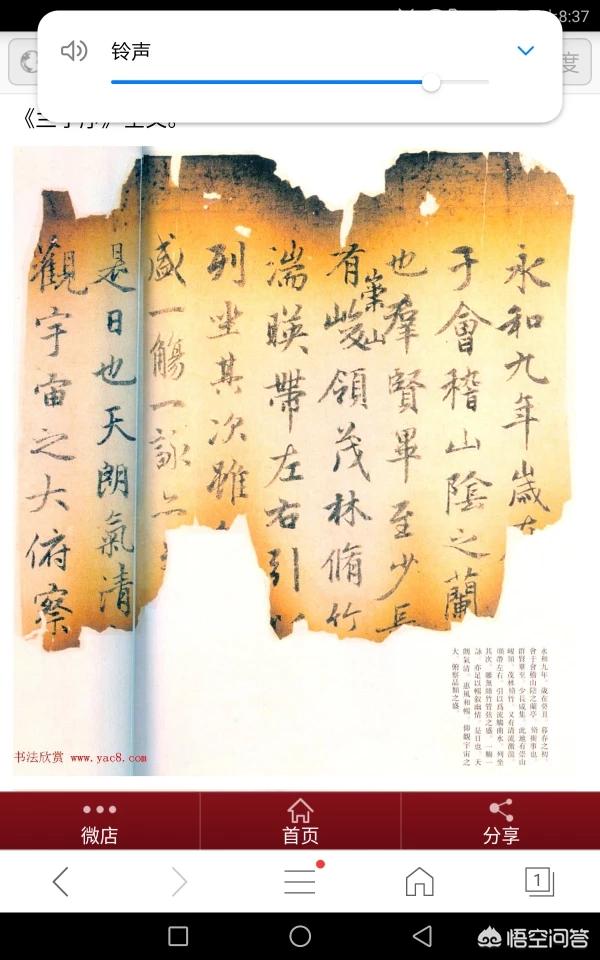 8:37
铃声
度
《兰亭序》全文。
永和九年歲在
于會稽山陰之蘭
也羣賢畢至少長
崇山
有峻領茂林脩竹
湍暎帶左右引
列坐其次雖
盛一觴一詠亦
是日也天朗氣清
觀宇宙之大俯察
永和九年、歲在癸丑、暮春之初、
會于會稽山陰之蘭亭、脩禊事也、
群賢畢至、少長咸集、此地有崇山
峻領、茂林脩竹、又有清流激湍、
暎帶左右、引以爲流觴曲水、列坐
其次、雖無絲竹管弦之盛、一觴一
詠、亦足以暢敘幽情、是日也、天
朗氣清、惠風和暢、仰觀宇宙之
大、俯察品類之盛
书法欣赏 www.yac8.com
微店
首页
分享
1
悟空问答